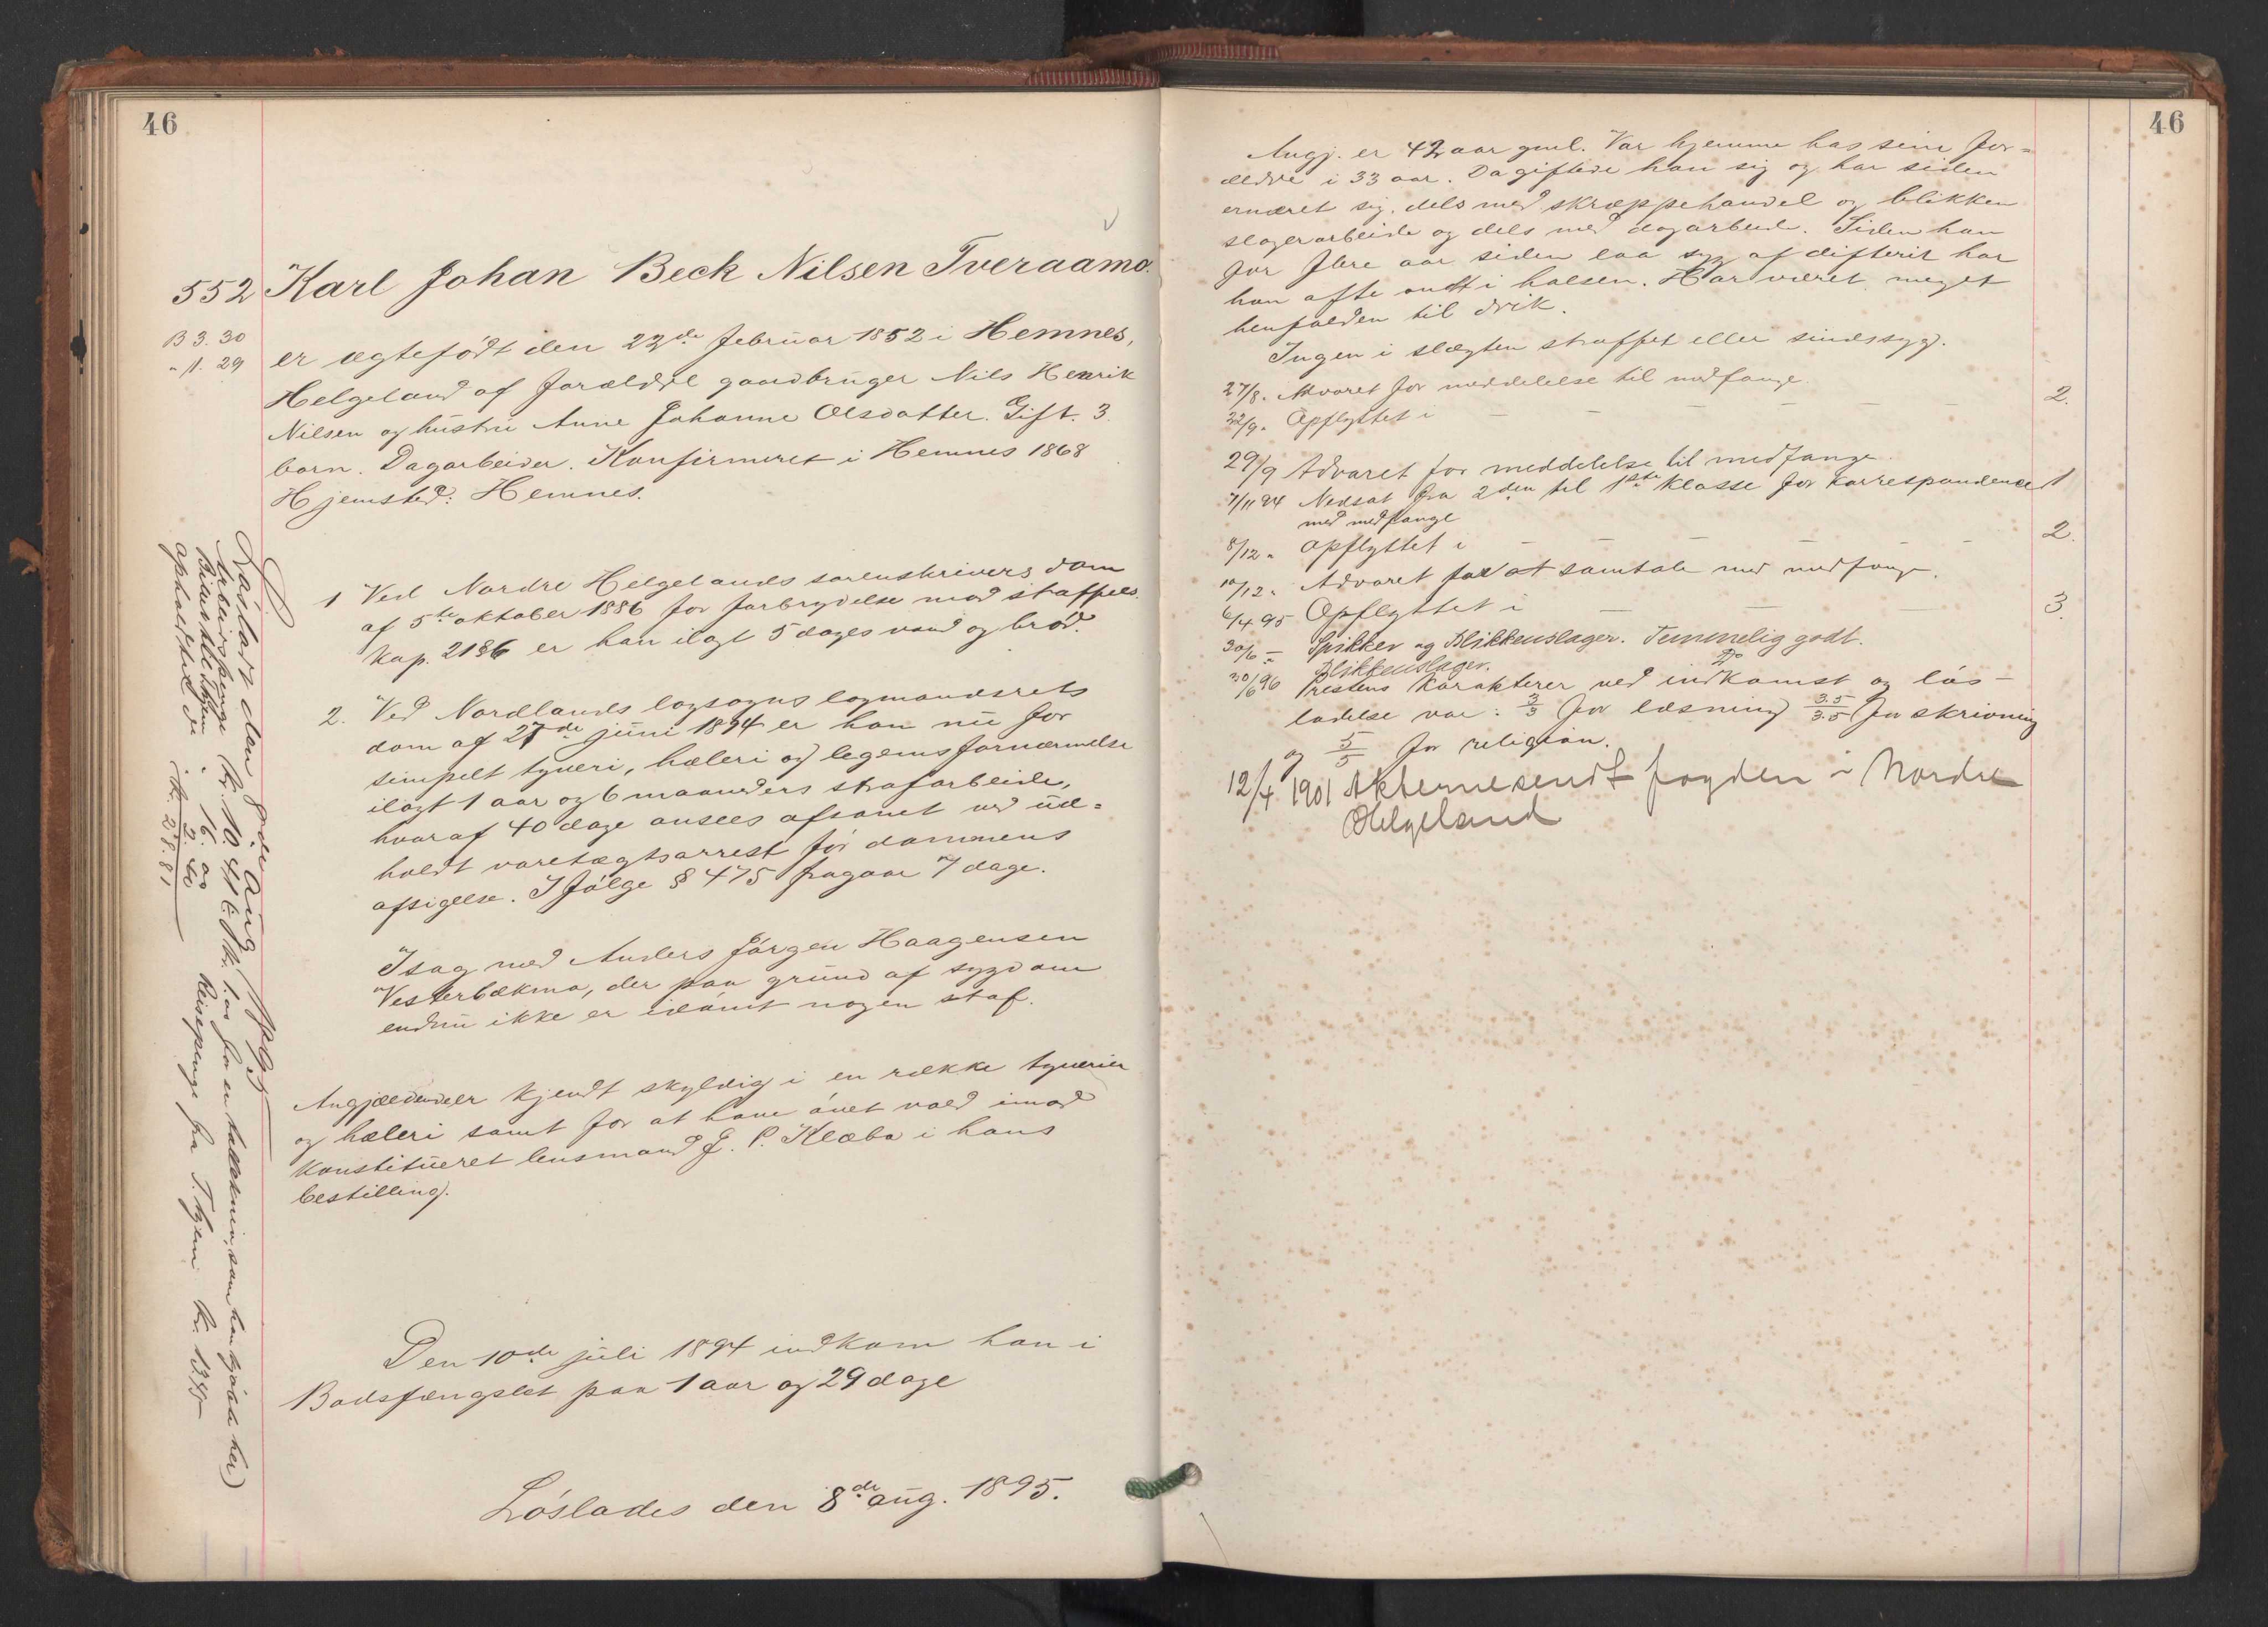 46
552 Karl Johan Beck Nilsen Tveraamo.
B 3. 30
" 1. 29
er ægtefödt den 22de februar 1852 i Hemnes,
Helgeland af forældre gaardbruger Nils Henrik
Nilsen og hustru Anne Johanne Olsdatter. Gift. 3
barn. Dagarbeider. Konfirmeret i Hemnes 1868
Hjemsted: Hemnes.
1 Ved Nordre Helgelands sorenskrivers dom
af 5te oktober 1886 for forbrydelse mod straffels.
kap. 21 § 6 er han ilagt 5 dages vand og bröd.
2. Ved Nordlands lagsogns lagmandsrets
dom af 27de juni 1894 er han nu for
simpelt tyveri, hæleri og legemsfornærmelse
ilagt 1 aar og 6 maaneders strafarbeide,
hvoraf 40 dage ansees afsonet ved ud=
holdt varetægtsarrest för dommens
afsigelse. Ifölge § 475 fragaar 7 dage.
I sag med Anders Jörgen Haagensen
Vesterbækmo, der paa grund af sygdom
endnu ikke er idömt nogen straf.
Angjældende er kjendt skyldig i en række tyverier
og hæleri samt for at have övet vold imod
konstitueret lensmand J. P. Klæbo i hans
bestilling.
Den 10de juli 1894 indkom han i
Bodsfængslet paa 1 aar og 29 dage
Löslades den 8de aug. 1895.
Lösladt den 8de aug
Arbeidspenge kr. 10.41 (: kr. 1.00 for en som han kjöbte her)
Billet til Thjem " 16. 00
ophold heri " 2. 40
kr. 28. 81
Reisepenge fra T.hjem kr.
46
Angj. er 42 aar gml. Var hjemme hos sine for=
ældre i 33 aar. Da giftede han sig og har siden
ernæret sig dels med skræppehandel og blikken
slagerarbeide og dels med dagarbeide. Siden han
for flere aar siden laa syg af difterit har
han ofte ondt i halsen. Har været meget
henfalden til drik.
Ingen i slægten straffet eller sindssyg.
27/8. Advaret for meddelelse til medfange.
22/9. Opflyttet i — — — — — 2.
29/9 Advaret for meddelelse til medfange.
7/11 94 Nedsat fra 2den til 1ste klasse for korrespondence 1
med medfange
8/12 " Opflyttet i — — — — 2.
10/12 " Advaret for at samtale med medfange.
6/4 95 Opflyttet i — — — 3.
30/6 " Spikker og Blikkenslager. Temmelig godt.
30/6 96 Blikkenslager. Do
Prestens karakterer ved indkomst og lös-
ladelse var: 3/3 for læsning 3.5/3.5 for skrivning
og 5/5 for religion.
12/4 1901 Akterne sendt fogden i Nordre
Helgeland